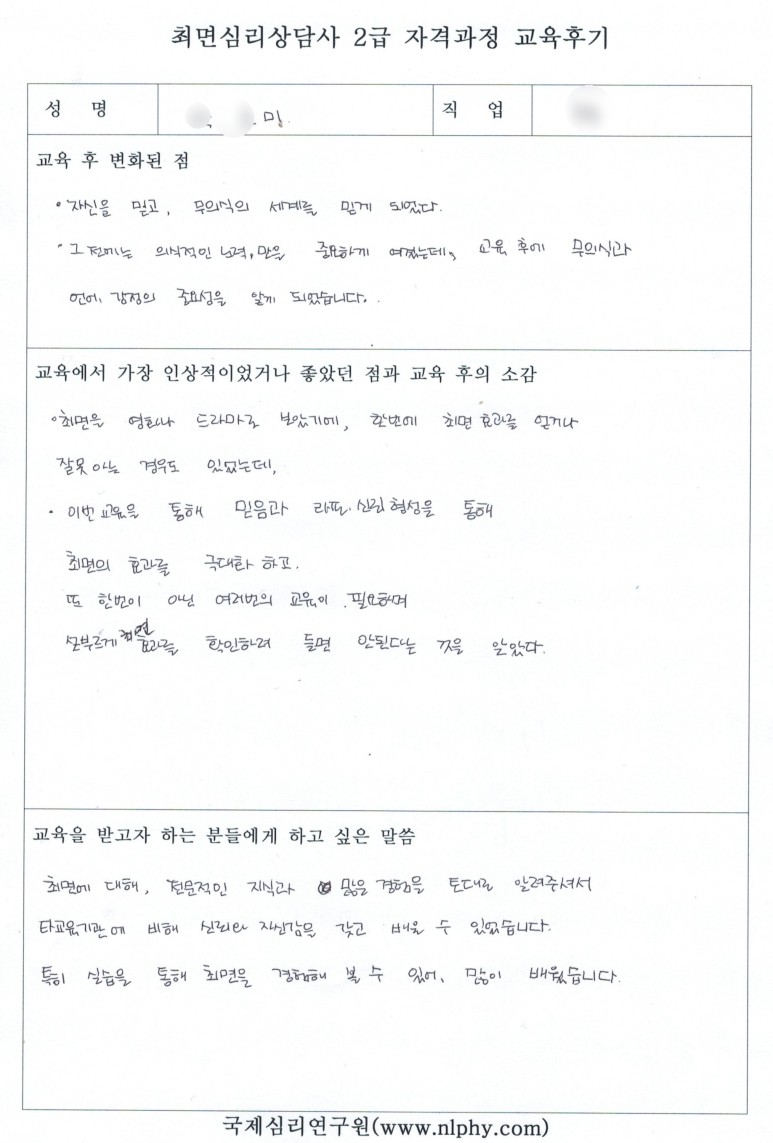 최면심리상담사 2급 자격과정 교육후기
성 명 민. 직 업
교육 후 변화된 점
• 자신을 믿고, 무의식의 세계를 믿게 되었다.
• 그 전에는 의식적인 노력, 만을 중요하게 여겼는데, 교육 후에 무의식과
언어, 감정의 중요성을 알게 되었습니다.
교육에서 가장 인상적이었거나 좋았던 점과 교육 후의 소감
• 최면을 영화나 드라마로 보았기에, 한번에 최면 효과를 얻거나
잘못 아는 경우도 있었는데,
• 이번 교육을 통해 믿음과 라포. 신뢰형성을 통해
최면의 효과를 극대화 하고.
또 한번이 아닌 여러번의 교육이 필요하며
섣부르게 최면 효과를 확인하려 들면 안된다는 것을 알았다.
교육을 받고자 하는 분들에게 하고 싶은 말씀
최면에 대해, 전문적인 지식과 많은 경험을 토대로 알려주셔서
타교육기관에 비해 신뢰와 자신감을 갖고 배울 수 있었습니다.
특히 실습을 통해 최면을 경험해 볼 수 있어, 많이 배웠습니다.
국제심리연구원(www.nlphy.com)